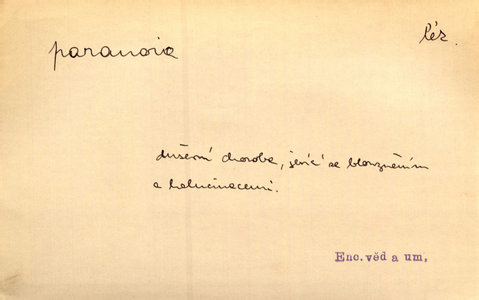 paranoia
léz.
duševní choroba, jevící se blouzněním
a halucinacemi.
Enc. věd a um,